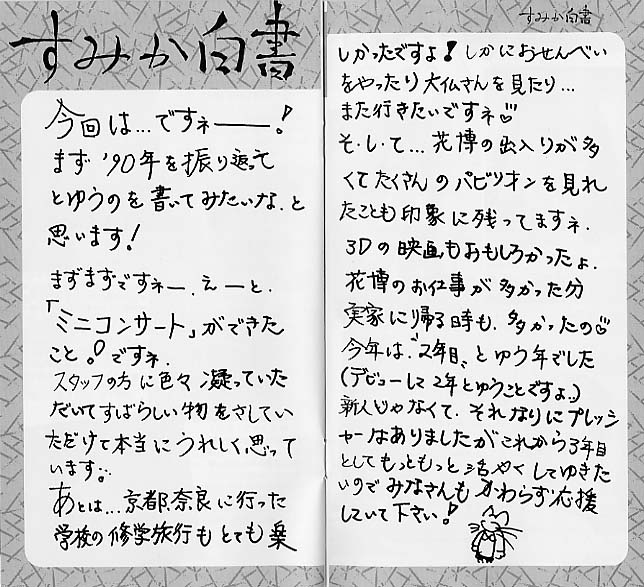 すみか白書
今回は…ですネ――!
まず'90年を振り返って
とゆうのを書いてみたいな.と
思います!
まずまずですネー.えーと.
「ミニコンサート」ができた
こと!ですネ.
スタッフの方に色々凝っていた
だいてすばらしい物をさしてい
ただけて本当にうれしく思って
います。
あとは…京都.奈良に行った
学校の修学旅行もとても楽
すみか白書
しかったですよ!しかにおせんべい
をやったり大仏さんを見たり…
また行きたいですネ♡
そ.し.て…花博の出入りが多
くてたくさんのパビリオンを見れ
たことも印象に残ってますネ.
3Dの映画もおもしろかったょ.
花博のお仕事が多かった分
実家に帰る時も.多かったの♡
今年は."2年目.とゆう年でした
(デビューして2年とゆうことですよ.)
新人じゃなくて.それなりにプレッシ
ャーはありましたがこれから3年目
としてもっともっと活やくしてゆきた
いのでみなさんもかわらず応援
していて下さい!